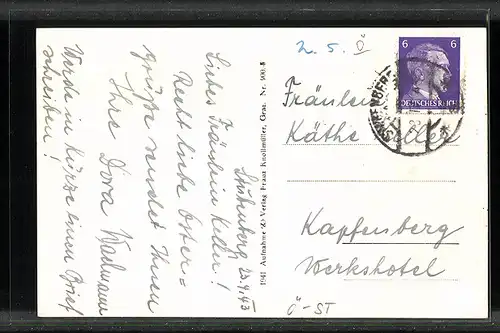 Stuhenberg, 23.4.43
Liebes Fräulein Keller!
Recht liebe Oster-
grüße sendet Ihnen
Ihre Dora
Werde in Kürze einen Brief
schreiben!
1941 Aufnahme u. Verlag Franz Knollmüller, Graz. Nr. 900.
2. 5. Ö
6 6
DEUTSCHES REICH
Fräulein
Käthe Keller
Kapfenberg
Werkshotel
Ö-ST